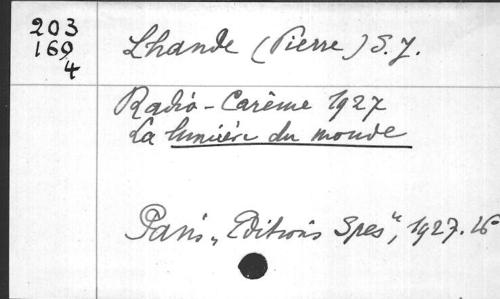 203
169
4
Lhande (Pierre) S.J.
Radio-Carême 1927
La lumière du monde
Paris „Editions Spes“, 1927. 16°